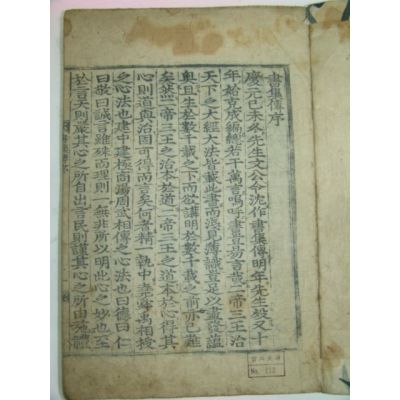 書集傳序
慶元己未冬先生文公令沈作書集傳明年先生歿又十
年始克成編總若干萬言嗚呼書豈易言哉二帝三王治
天下之大經大法皆載此書而淺見薄識豈足以盡發蘊
奧且生於數千載之下而欲講明於數千載之前亦已難
矣然二帝三王之治本於道二帝三王之道本於心得其
心則道與治固可得而言矣何者精一執中堯舜禹相授
之心法也建中建極商湯周武相傳之心法也曰德曰仁
曰敬曰誠言雖殊而理則一無非所以明此心之妙也至
於言天則嚴其心之所自出言民則謹其心之所由施禮
No. 112